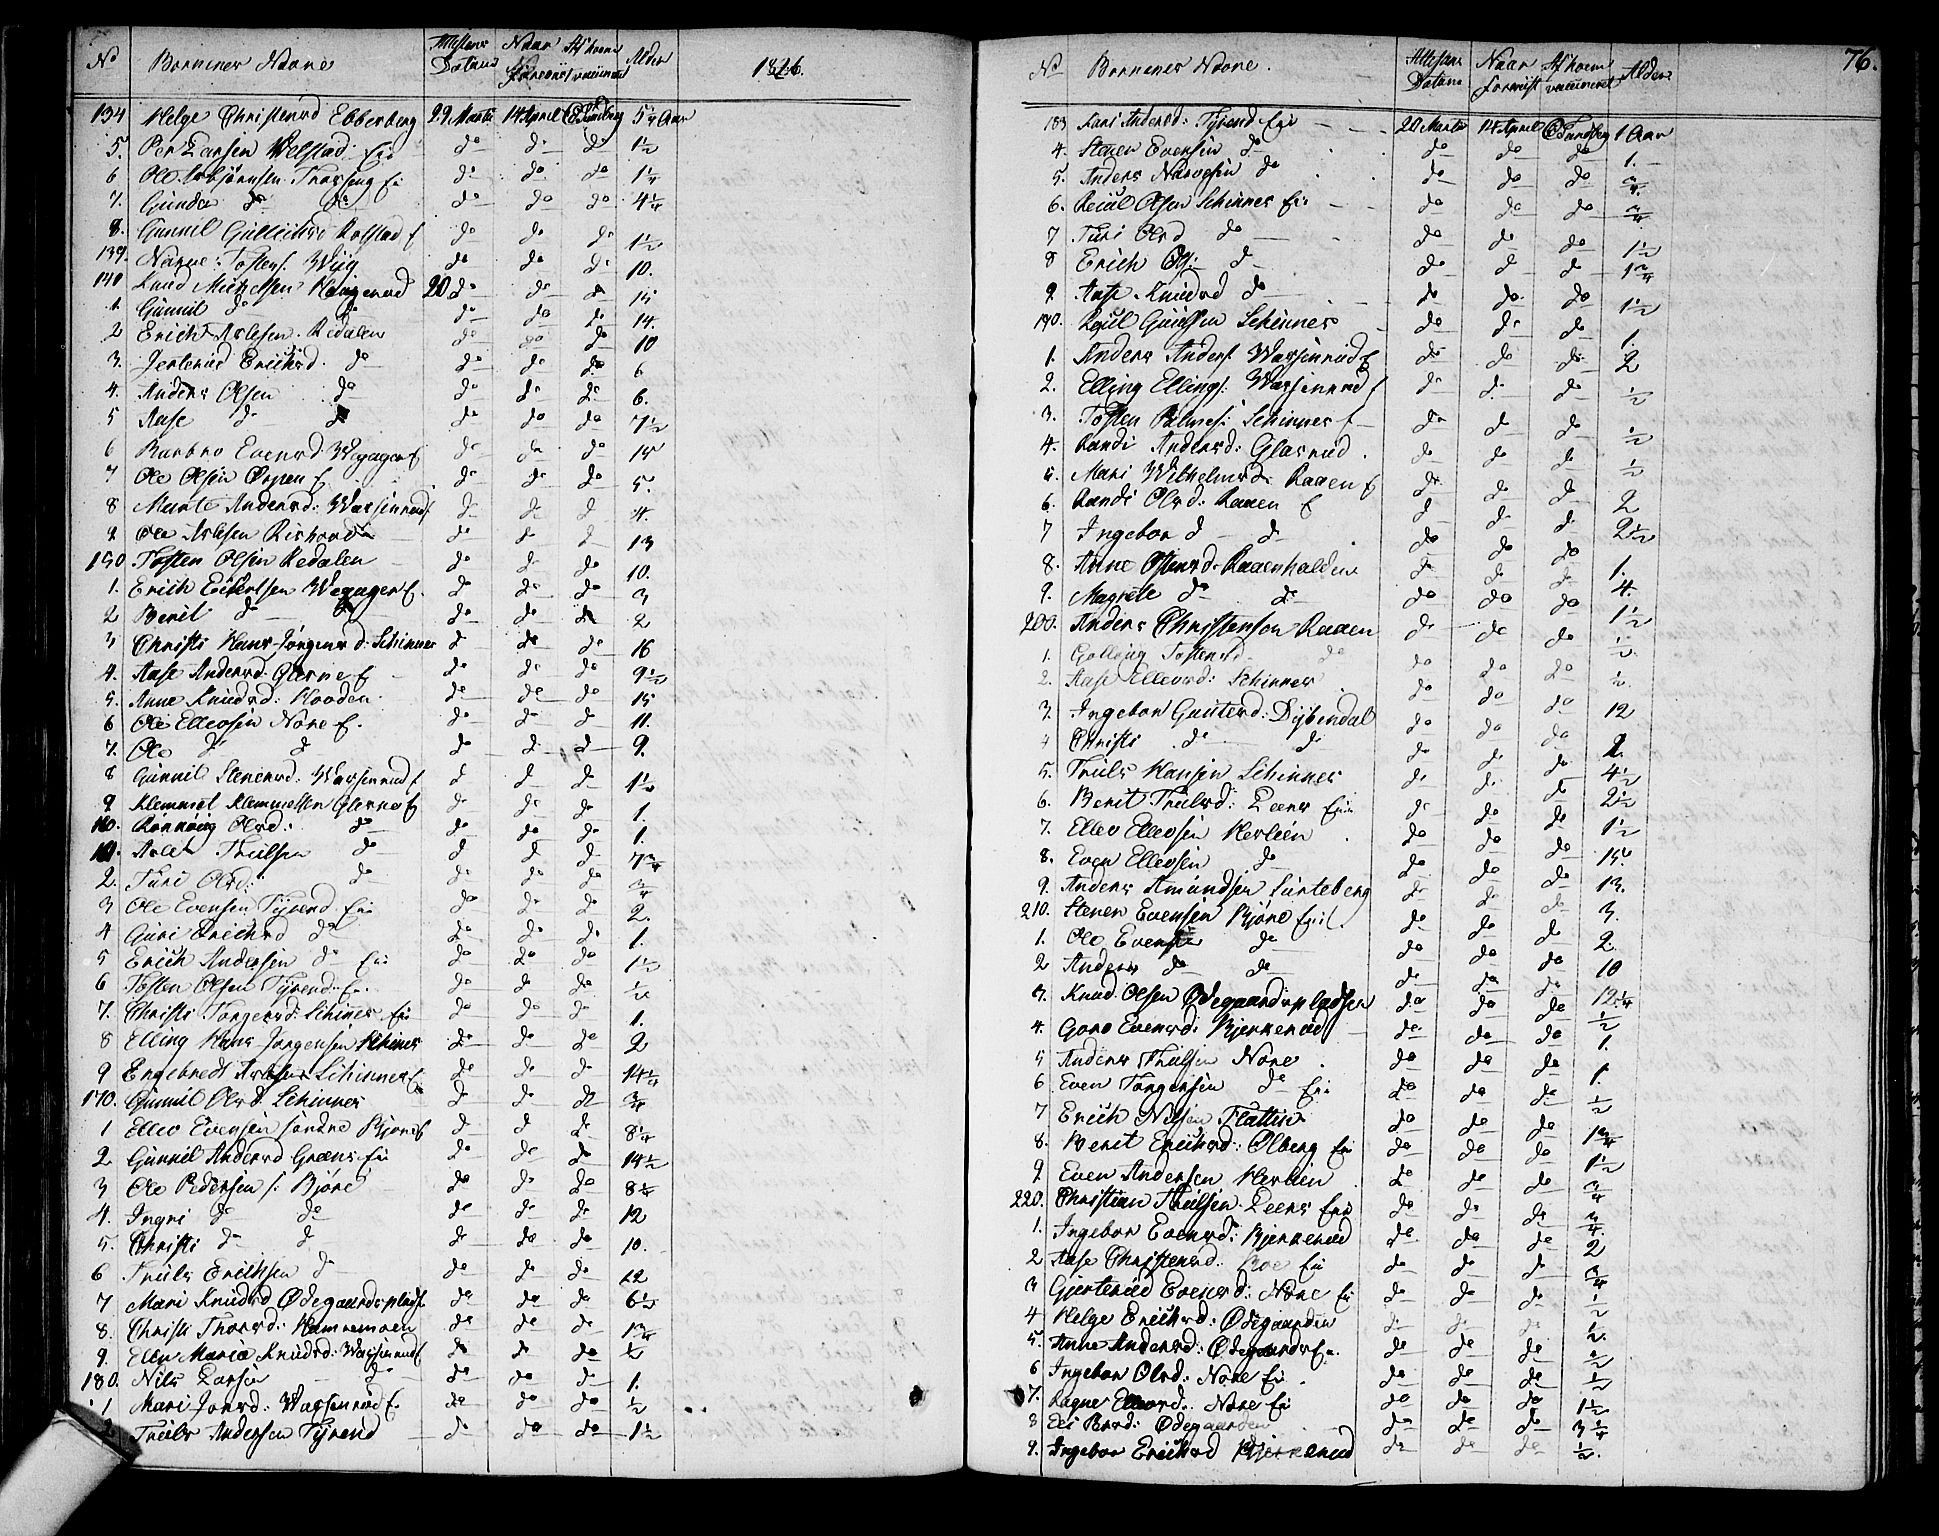 No Børnenes Navne Attestens Datum Naar forevist Af hvem vaccineret Alder 1826.
134 Helge Christensd Ebberberg 29 Marts 14 April 5 1/4 Aar
5. Per Larsen Welstad Eie do do do 1 1/2
6 Ole do do do 1 1/4
7. Gunder do do do do do 4 1/4
8. Gunnil Rolstad do do do 1 1/2
139. Narve Tostens. Wiig do do do 10.
140 Knud Michelsen Haugerud 20 do do do 15
1. Gunnil do do do do do 14.
2 Erich Aslesen Redalen do do do 10
3. Jerterud Erichsd. do do do do 6
4. Anders Olsen do do do do 6.
5 Aase do do do do do 7 1/2
6 Barbro Evensd Wegager E do do do 15
7 Ole Olsen E do do do 5.
8 Marte Andersd: Wassenrud do do do 4.
9 Ole Aslesen do do do 13
150 Tosten Olsen Redalen do do do 10.
1. Erich Wegager E. do do do 3
2 Berit do do do do do 2
3 Christi Hans Jørgensd: Schinnes do do do 16
4. Aase Andersd. E do do do 9 1/2
5. Anne Knudsd: do do do 15
6 Ole Ellevsen Nore E. do do do 11.
7. Ole do do do do do 9.
8 Gunnil Stenersd: Wassenrud do do do 1 1/2
9 Klemmet Klemmetsen do do do 1.
160. Rønnaug Olsd: do do do do 1.
161. Thulsen do do do do 7 3/4
2. Turi Olsd: do do do do 3/4
3 Ole Evensen Tyrend Eie do do do 2.
4 Guri Erichsd do do do do 1.
5 Erich Andersen do Eie do do do 1 1/2
6 Tosten Olsen Tyrend. Ei. do do do 1/2
7. Christi Torgersd: Schinnes Eie do do do 1.
8 Elling Hans Jørgensen Schinnes do do do 2
9 Engebredt Schinnes do do do 14 1/4
170. Gunnil Olsd. Schinnes do do do 3/4
1 Ellev Evensen søndre Bjøre do do do 8 1/4
2 Gunnil Andersd Eie do do do 14 1/2
3 Ole Pedersen s. Bjøre do do do 8 1/4
4. Ingri do do do do do 12
5. Christi do do do do do 10.
6 Truls Erichsen do do do do 12
7 Mari Knudsd Ødegaardspladf do do do 6 1/2
8. Christi Thorsd: Hamremoen do do do 1 3/4
9. Ellen Maria Knudsd: Wassenrud do do do 1/2
180. Nils Larsen do do do do 1.
1 Mari Jonsd: Wassenrud E. do do do 1/2
2 Truls Andersen Tyrend do do do 1 1/2
76.
No Børnenes Navne. Attestens Datum Naar Forevist Af hvem vaccineret Alder
183 Kari Andersd: Tyrend Eie 20 Marts 14 April 1 Aar
4. Stener Evensen do do do do 1.
5. Anders Narvesen do do do do 3/4
6. Reiul Olsen Schinnes Eie do do do 3/4
7 Turi Olsd do do do do 1 1/2
8 Erich Ols: do do do do 1 3/4
9 Aase Knudsd do do do do 1 1/2
190. Reiul Schinnes do do do 1.
1. Anders Anders. Wassenrud E do do do 2
2. Elling Ellings. Wassenrud do do do 1/2
3. Tosten Schinnes do do do 1/2
4. Randi Andersd: Glasrud do do do 1/2
5. Mari Wilhelmsd: Raaen E do do do 2
6. Randi Olsd: Raaen E do do do 2 1/2
7 Ingebor d do do do do
8. Anne Ostensd. Raaenhalden do do do 1.
9. Magrete do do do do do 4.
200. Anders Christensen Raaen do do do 1 1/2
1. Tostensd. do do do do 1/2
2. Aase Ellevsd: Schinnes do do do 1/2
3. Ingebor Gutersd: Dybendal do do do 12
4 Christi do do do do do 2.
5. Truls Hansen Schinnes do do do 4 1/2
6. Berit Trulsd: Eie do do do 2 1/2
7. Ellev Ellevsen Herleen do do do 1 1/2
8. Even Ellevsen do do do do 15
9. Anders Amundsen do do do 13.
210. Stener Evensen Bjøre do do do 3.
1. Ole Evensen do do do do 2
2 Anders do do do do do 10
3. Knud Olsen Ødegaardspladsen do do do 12 1/4
4. Goro Evensd: Bjerkerud do do do 1/2
5 Anders Thulsen Nore do do do 1.
6 Even Torgersen do Eie do do do 1.
7 Erich Nilsen do do do 1/2
8. Berit Erichsd: Ølberg Eie do do do 1 3/4
9 Even Andersen Herleen do do do 1 1/2
220. Christian Trulsen Eie do do do 3/4
1. Ingebor Evensd: Bjerkerud do do do 3/4
2 Aase Christensd: Eie do do do 2
3 Gjerterud Evensd: Nore Ei do do do 3/4
4 Helge Erichsd: Ødegaarden do do do 1/2
5. Anne Andersd: Ødegaards E. do do do 1/2
6 Ingebor Olsd: Nore Ei. do do do 1/2
7. Ragne Ellevsd: Nore Ei do do do 1 1/2
8 Ødegaarden do do do 3 1/4
9. Ingebor Erichsd Bjerkerud do do do 1/2